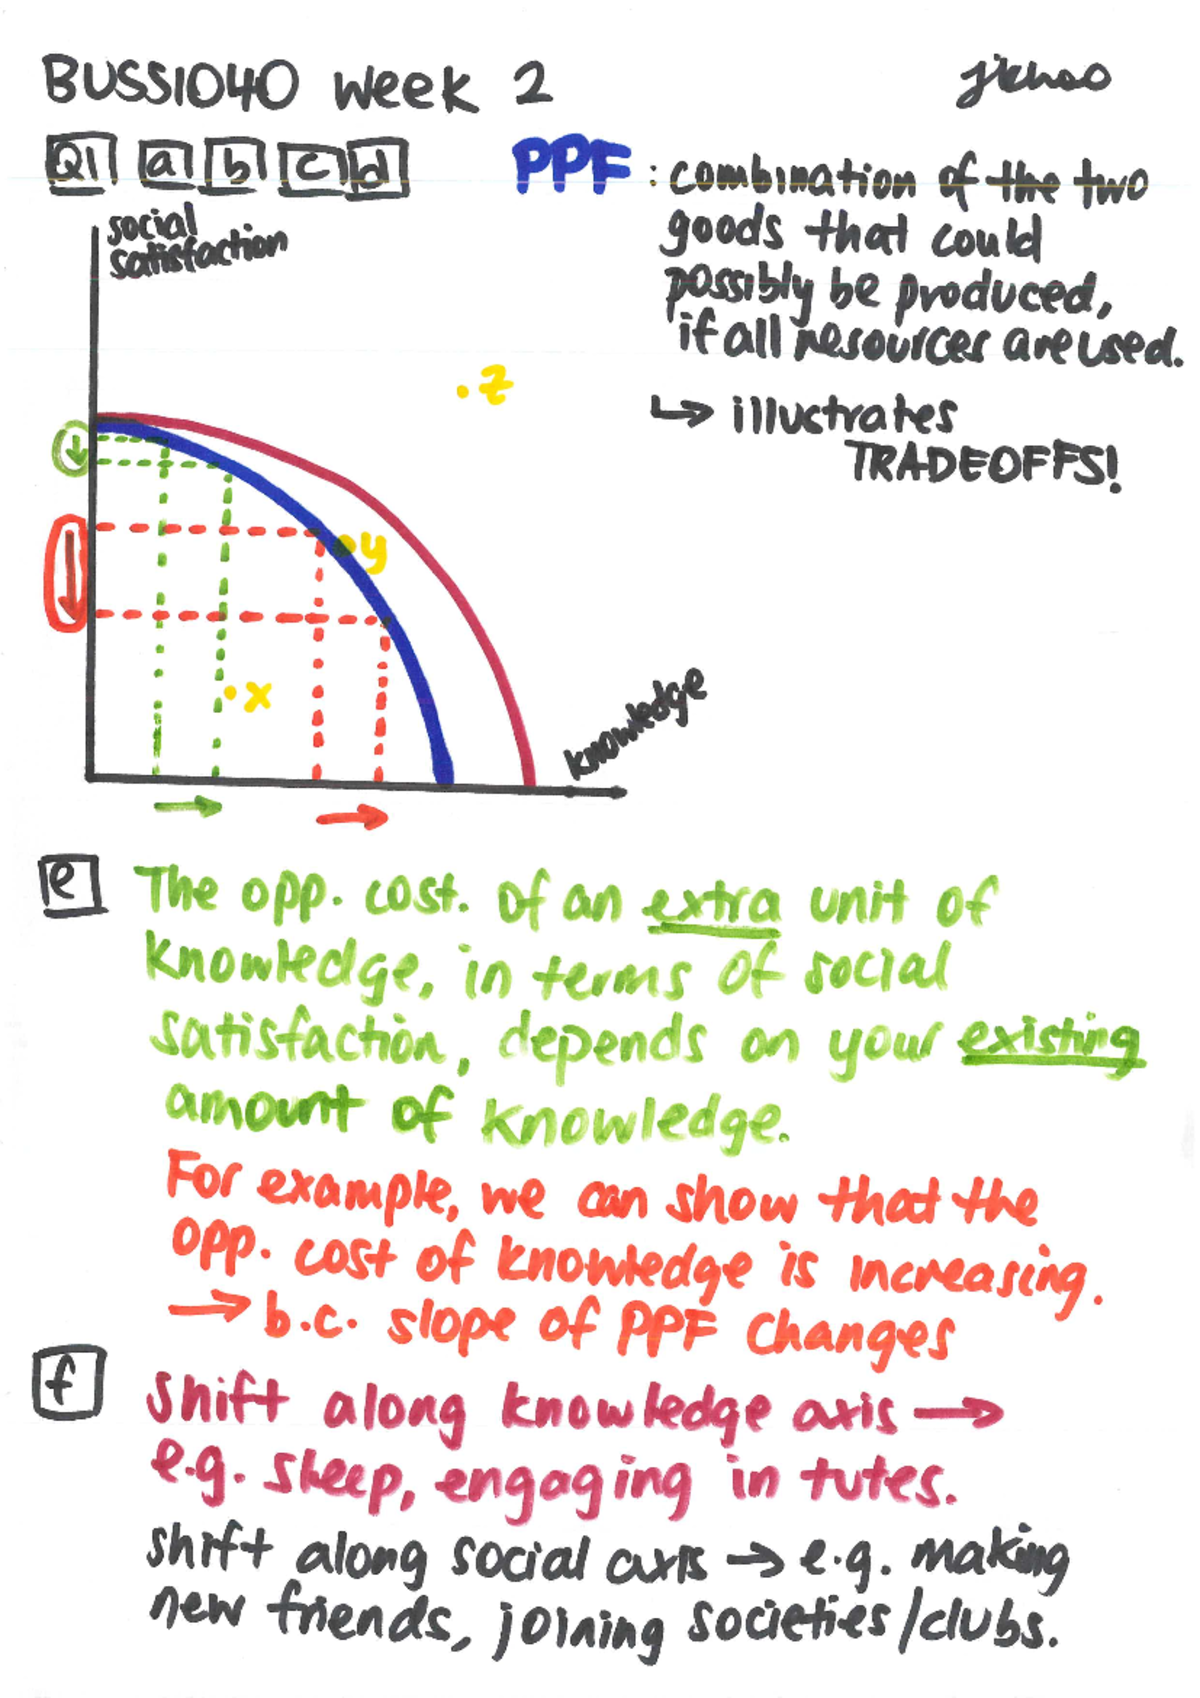 BUSS1040 Week 2
Q1 a b c d
PPF : combination of the two
goods that could
possibly be produced,
if all resources are used.
↳ illustrates
TRADEOFFS!
social
satisfaction
.z
.y
.x
knowledge
e The opp. cost. of an extra unit of
knowledge, in terms of social
satisfaction, depends on your existing
amount of knowledge.
For example, we can show that the
opp. cost of knowledge is increasing.
→ b.c. slope of PPF changes
f shift along knowledge axis →
e.g. sleep, engaging in tutes.
shift along social axis → e.g. making
new friends, joining societies/clubs.